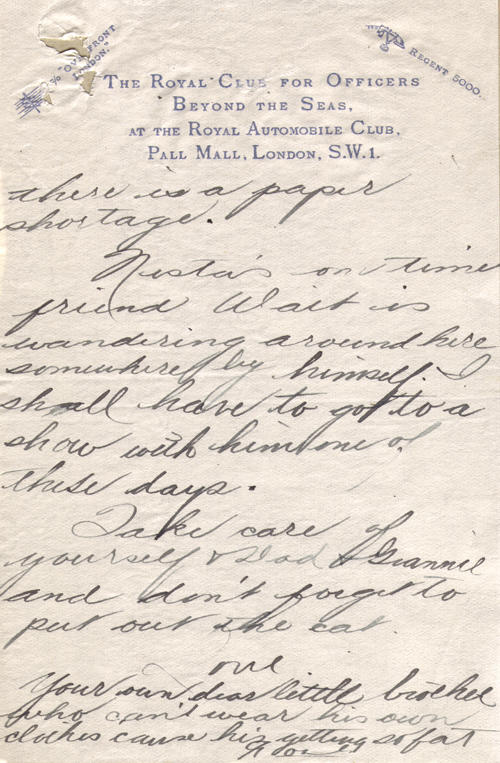 "OVERFRONT
LONDON."
REGENT 5000.
THE ROYAL CLUB FOR OFFICERS
BEYOND THE SEAS,
AT THE ROYAL AUTOMOBILE CLUB,
PALL MALL, LONDON, S.W.1.
there is a paper
shortage.
Nista's on time
friend Wait is
wandering around here
somewhere by himself. I
shall have to got to a
show with him one of
these days.
Take care of
yourself & Dad &
and don't forget to
put out the cat
Your own dear little brother
who can't wear his own
clothes cause his getting so fat